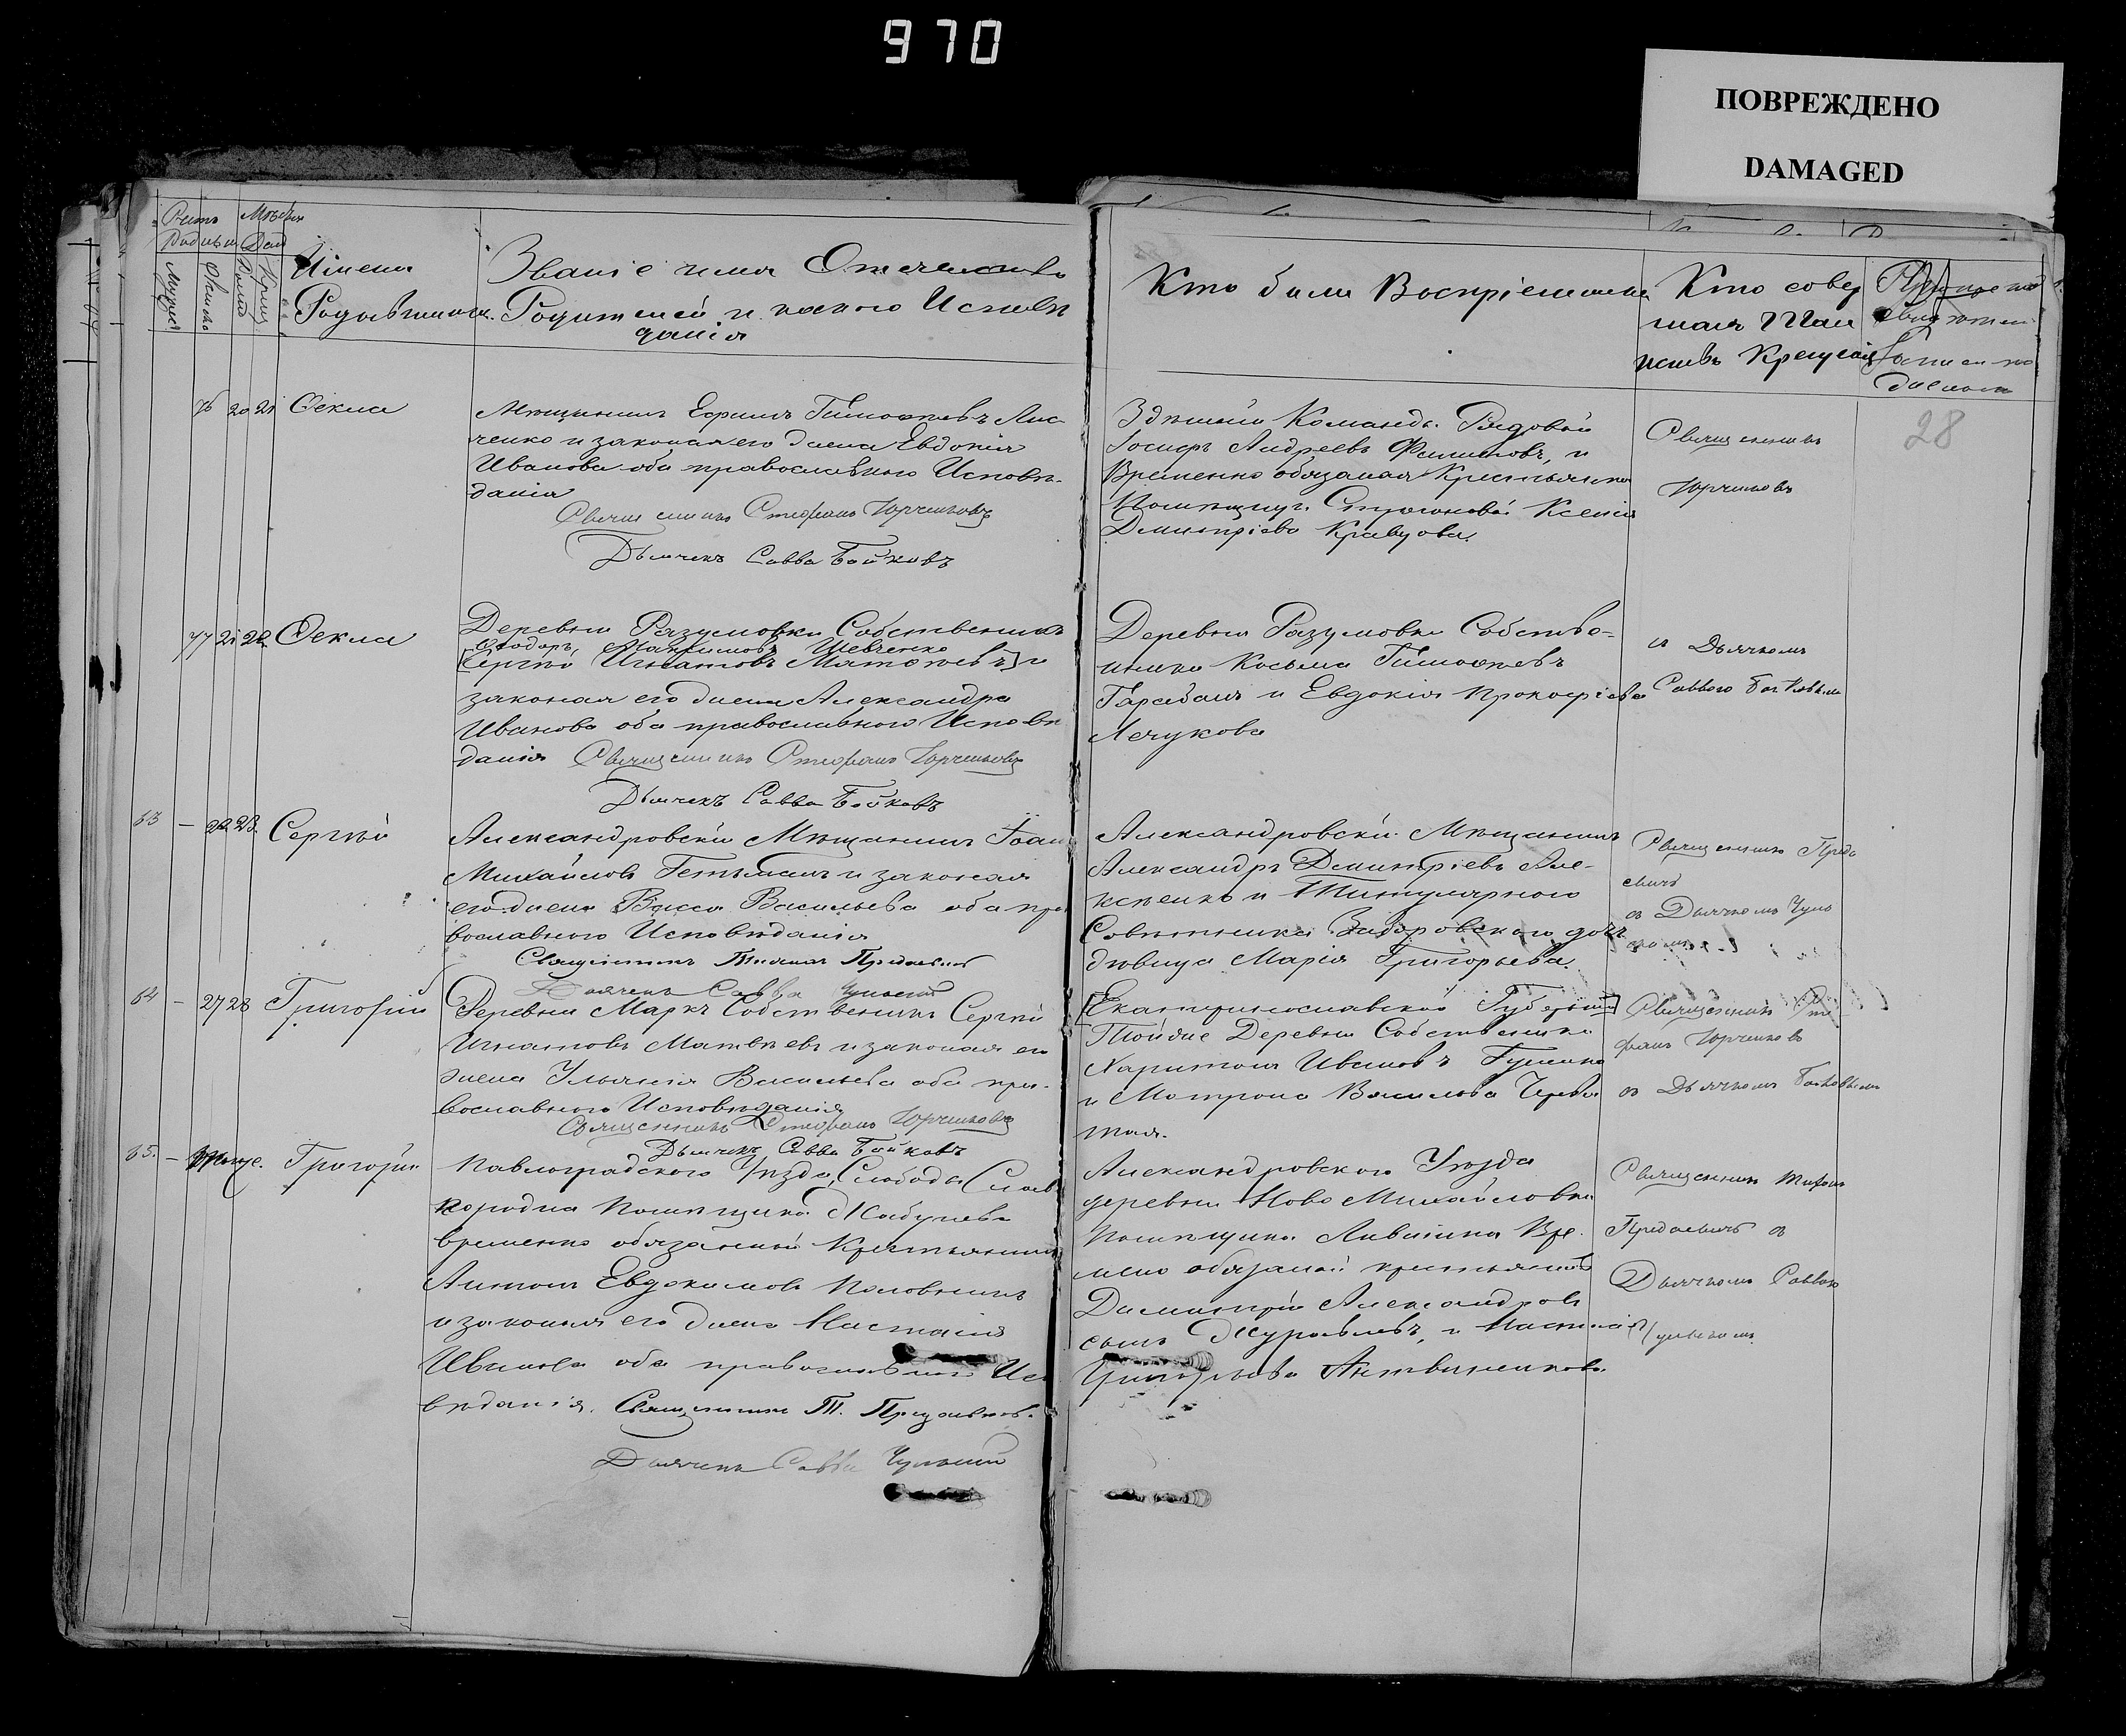 970
ПОВРЕЖДЕНО
DAMAGED
Имена
Родившихся
Званіе имя Отчество
Родителей и какого Исповѣ
данія
Кто были Воспріемники
Кто совер
шалъ Таи
нство Крещенія
76 20 21 Ѳекла
Мѣщанинъ Ефримъ Тимоѳеевъ Лис
ченко и законая его жена Евдокія
Иванова оба православнаго Исповѣ-
данія
Священникъ Стефанъ Юрченковъ
Дьячекъ Савва Бойковъ
Здѣшней Команды Рядовой
Іосифъ Андреевъ Филиповъ, и
Временно обязаная Крестьянка
Помѣщицы Ксенія
Дмитріева Кравцова.
Священникъ
Юрченковъ
28
77 21 22 Ѳекла
Деревни Разумовки Собственникъ
Ѳеодоръ, Максимовъ Шевченко
[Сергѣй Игнатовъ Матвѣевъ] и
законая его жена Александра
Иванова оба православнаго Исповѣ
данія Священникъ Стефанъ Юрченковъ
Дьячекъ Савва Бойковъ
Деревни Разумовки Собстве-
нникъ Косьма Тимоѳеевъ
Гарабанъ и Евдокія Прокофіева
Лечукова
и Дьячкомъ
Саввою Бойковымъ
63 — 22 23. Сергѣй
Александровскій Мѣщанинъ Іоан
Михайловъ Гетьманъ и законая
его жена Васса Васильева оба пра
вославнаго Исповѣданія
Священникъ Тихонъ Предаевичъ
Дьячекъ Савва Чульскій
Александровскій Мѣщанинъ
Александръ Дмитріевъ Але-
ксѣенко и Титулярнаго
Совѣтника дочь
дѣвица Марія Григорьева.
Священникъ Преда
евичъ
съ Дьячкомъ
64 — 27 28 Григорій
Деревни Маркъ Собственникъ Сергѣй
Игнатовъ Матвѣевъ и законая его
жена Ульянія Васильева оба пра-
вославнаго Исповѣданія
Священникъ Стефанъ Юрченковъ
Дьячекъ Савва Бойковъ
[Екатеринославской Губерніи]
Тойже Деревни Собственники
Харитонъ Ивановъ Гуменко
и Матрона Василева
Священникъ Сте
фанъ Юрченковъ
съ Дьячкомъ Бойковымъ
65. — Григорій
Павлоградскаго Уѣзда, Слободы Слав
городка Помѣщика
временно обязанный Крестьянинъ
Антонъ Евдокимовъ Половнинъ
и законая его жена Настасія
Иванова оба православнаго Исп
вѣданія. Священникъ Т. Предаевичъ.
Дьячекъ Савва Чульскій
Александровскаго Уѣзда
деревни Ново Михайловки
Помѣщика Вре
мено обязаной крестьянинъ
Димитрій Александровъ
сынъ Журавлевъ, и Настасія
Григорьева
Священникъ Тихонъ
Предаевичъ съ
Дьячкомъ Саввою
Чульскимъ.